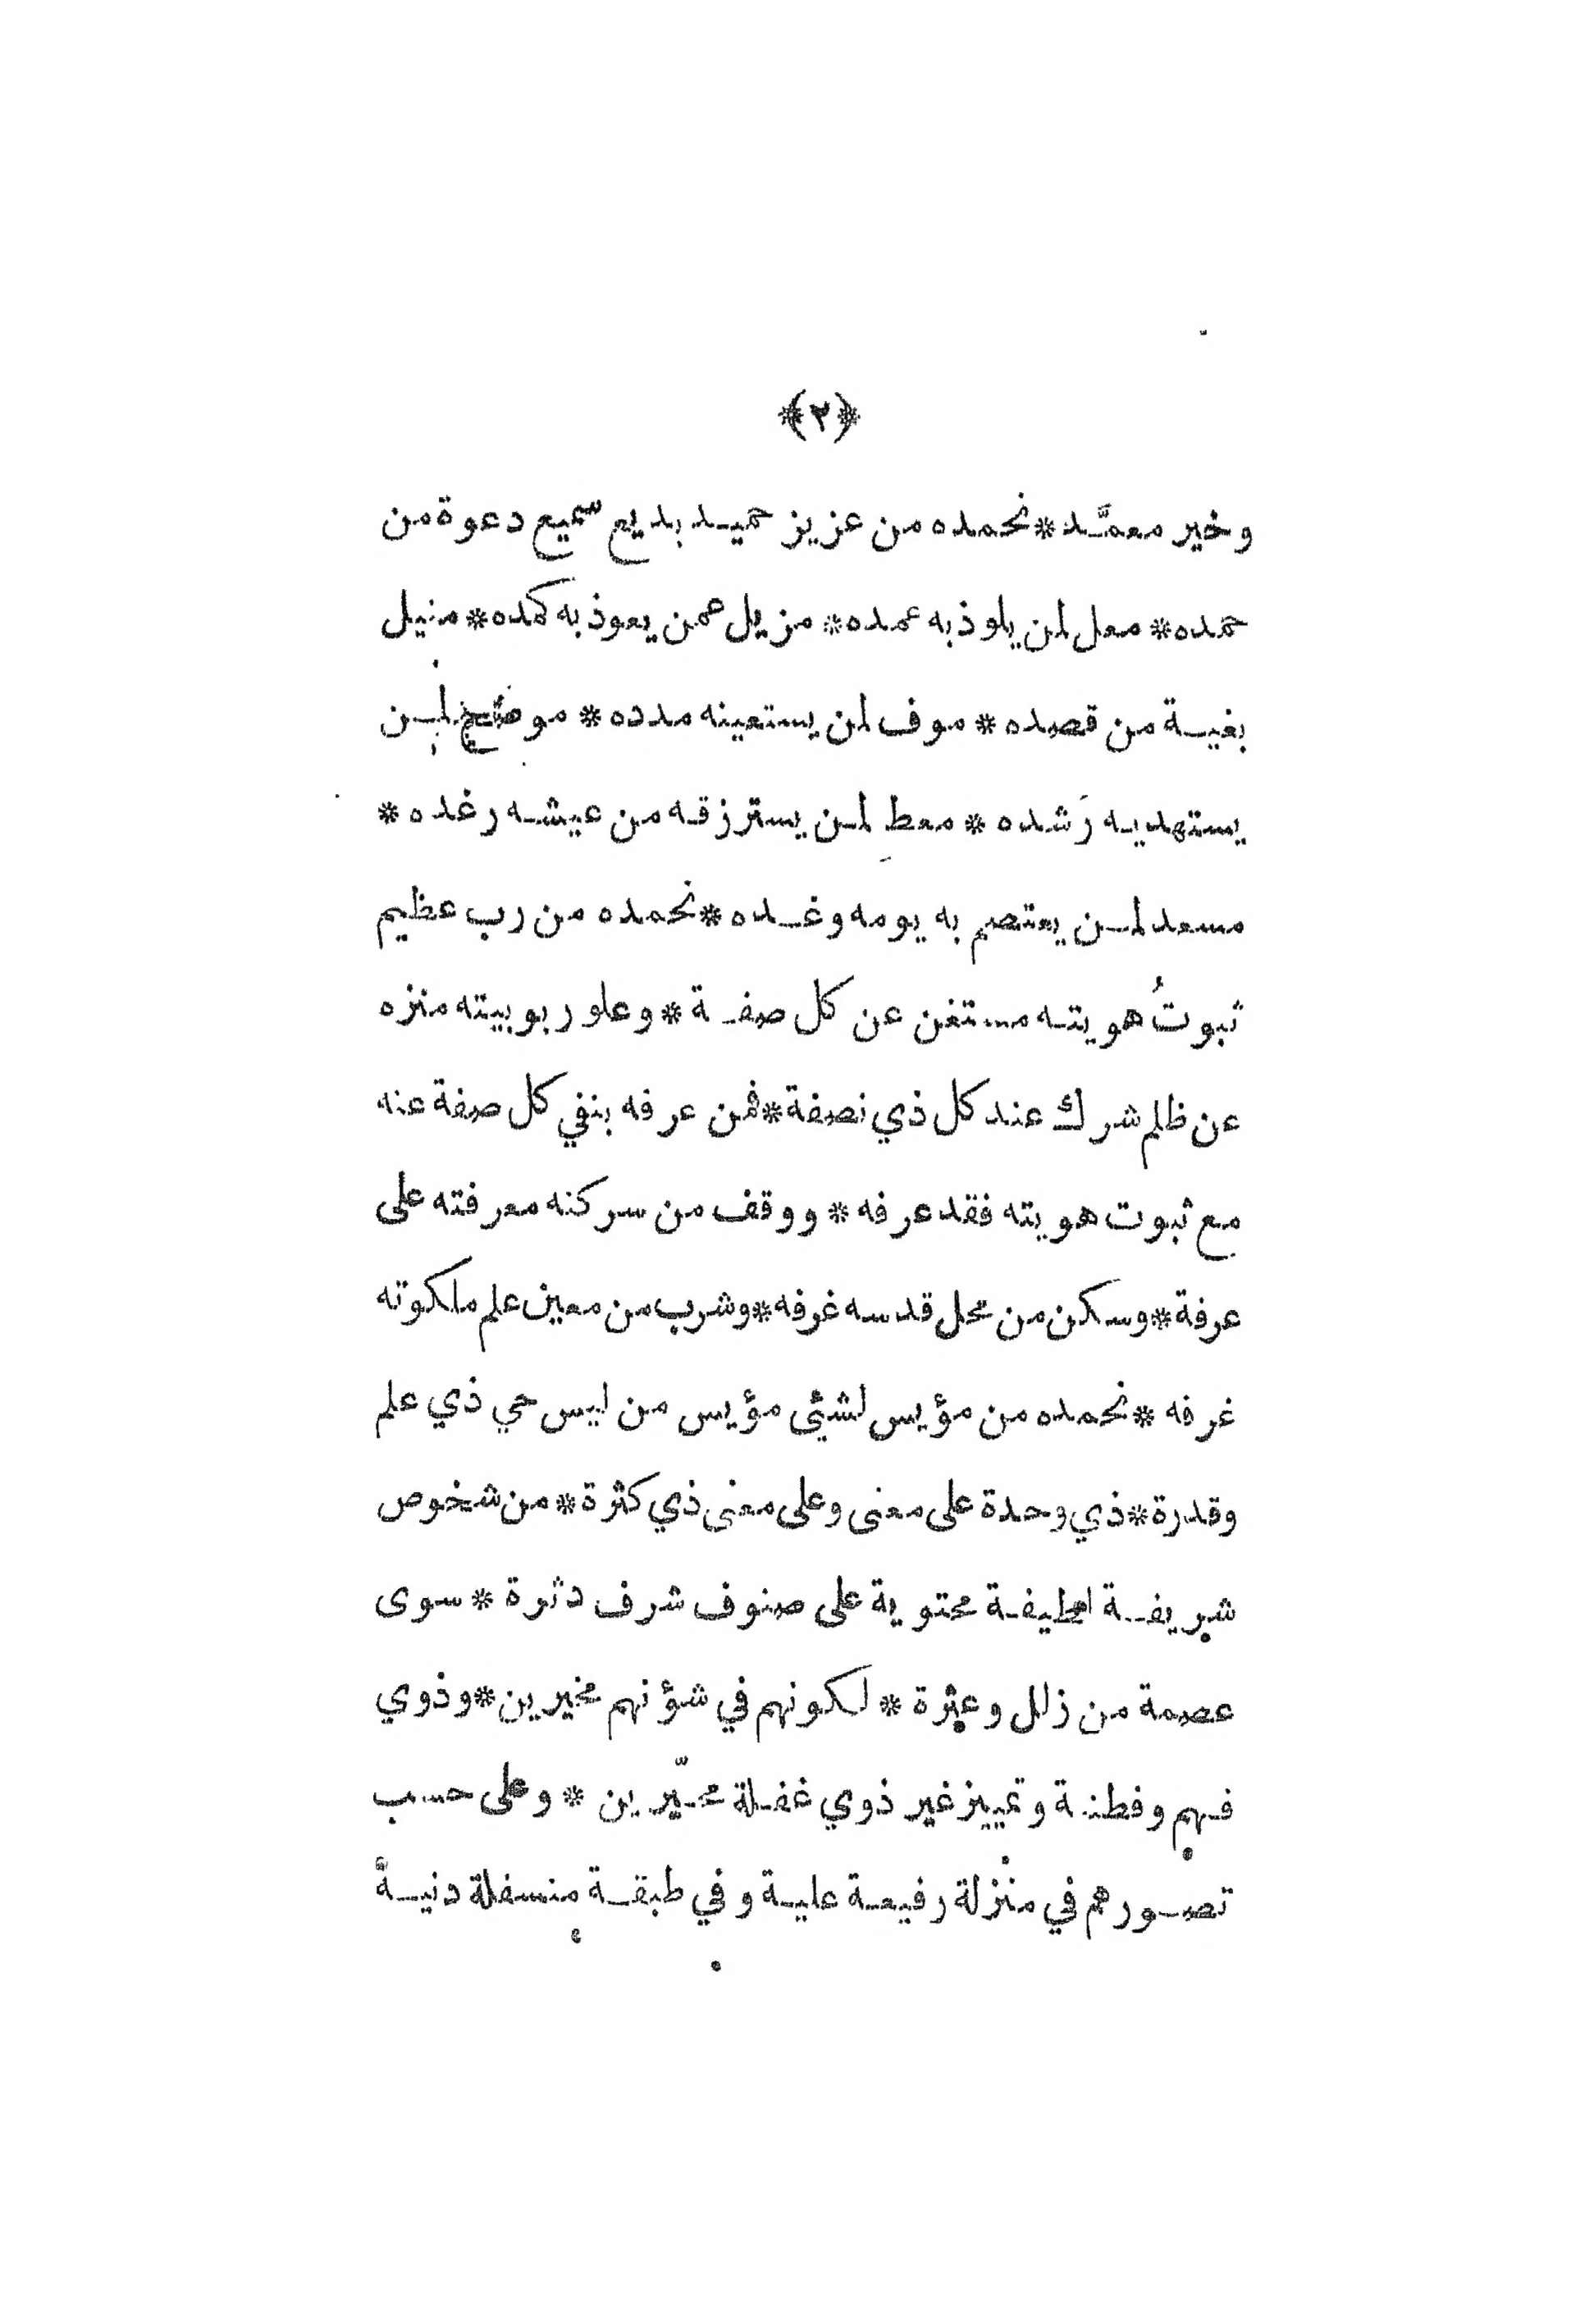 ﴿٢﴾
وخير معمَّد * نحمده من عزيز حميد بديع سميع دعوة من
حمده * معل لمن يلوذ به عمده * مزيل عمن يعوذ به كمده * منيل
بغية من قصده * موف لمن يستعينه مدده * موضح لمن
يستهديه رَشده * معطِ لمن يسترزقه من عيشه رغده *
مسعد لمن يعتصم به يومه وغده * نحمده من رب عظيم
ثبوتُ هويته مستغن عن كل صفة * وعلو ربوبيته منزه
عن ظلم شرك عند كل ذي نصفة * فمن عرفه بنفي كل صفة عنه
مع ثبوت هويته فقد عرفه * ووقف من سر كنه معرفته على
عرفة * وسكن من محل قدسه غرفه * وشرب من معين علم ملكوته
غرفه * نحمده من مؤيس لشيئ مؤيس من ايس حي ذي علم
وقدرة * ذي وحدة على معنى وعلى معنى ذي كثرة * من شخوص
شريفة لطيفة محتوية على صنوف شرف دثرة * سوى
عصمة من زلل وعثرة * لكونهم في شؤنهم مخيرين * وذوي
فهم وفطنة وتمييز غير ذوي غفلة محيّرين * وعلى حسب
تصورهم في منزلة رفيعة علية وفي طبقة منسفلة دنيةً